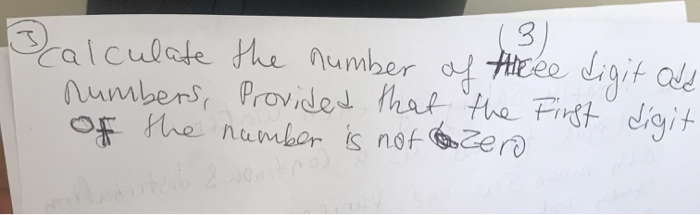 3 Calculate the number of three (3) digit odd
numbers, Provided that the First digit
of the number is not Zero